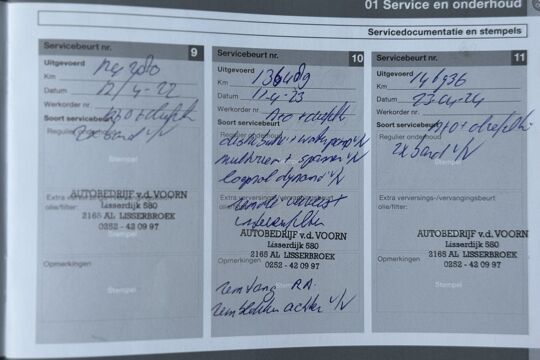 01 Service en onderhoud
Servicedocumentatie en stempels
Servicebeurt nr. 9
Uitgevoerd
Km
Datum 12/4-22
Werkorder nr.
Soort servicebeurt
Regulier
Stempel
Extra verversings-/vervangingsbeurt
olie/filter:
AUTOBEDRIJF v.d. VOORN
Lisserdijk 580
2165 AL LISSERBROEK
0252 - 42 09 97
Opmerkingen
Stempel
Servicebeurt nr. 10
Uitgevoerd
Km 136489
Datum 11-4-23
Werkorder nr.
Soort servicebeurt
Regulier onderhoud
distributie + waterpomp v/v
multiriem + spanner v/v
Extra verversings-/vervangingsbeurt
olie/filter:
interieurfilter
AUTOBEDRIJF v.d. VOORN
Lisserdijk 580
2165 AL LISSERBROEK
0252 - 42 09 97
Opmerkingen
remtang R.A.
remblokken achter v/v
Servicebeurt nr. 11
Uitgevoerd
Km
Datum 23-04-24
Werkorder nr.
Soort servicebeurt
Regulier onderhoud
2x band v/v
Stempel
Extra verversings-/vervangingsbeurt
olie/filter:
AUTOBEDRIJF v.d. VOORN
Lisserdijk 580
2165 AL LISSERBROEK
0252 - 42 09 97
Opmerkingen
Stempel